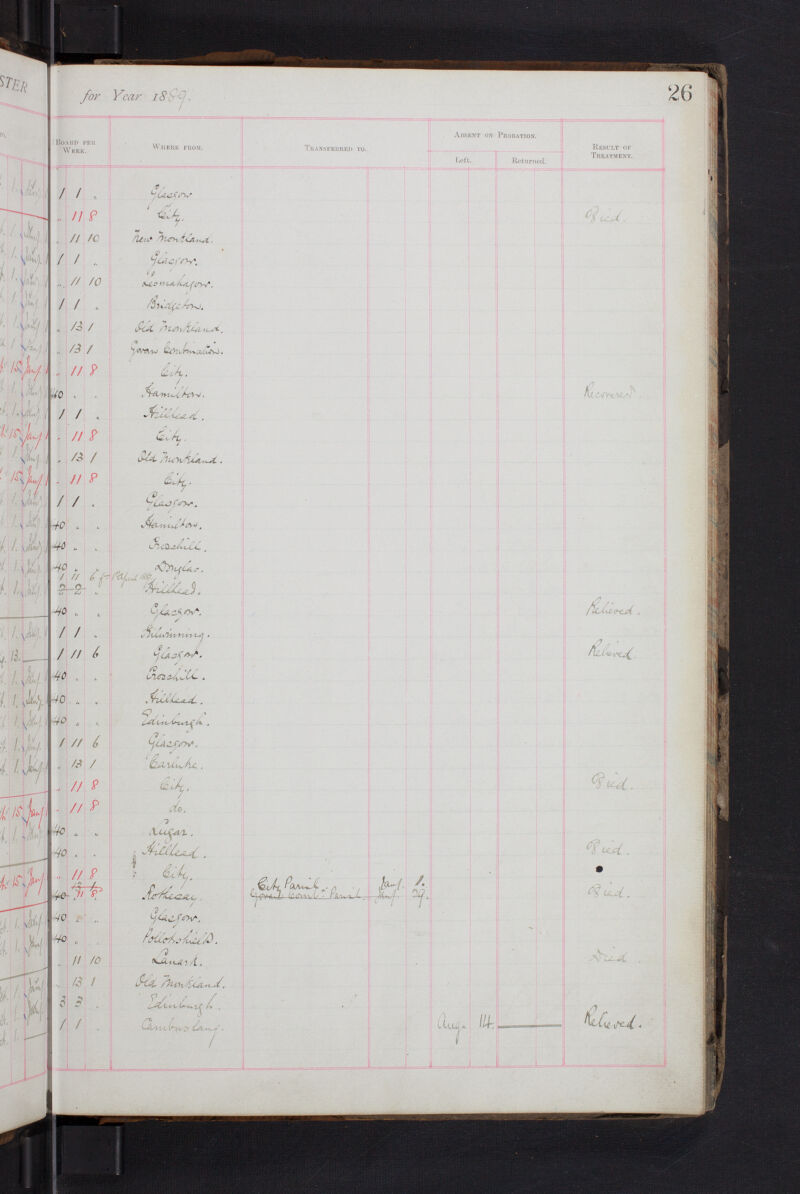 STER
for Year 1889.
26
Board per Week.
Where from.
Transferred to.
Absent on Probation.
Left.
Returned.
Result of Treatment.
1 1 . Glasgow
.. 11 8 City. Died.
.. 11 10 New Monkland.
1 1 .. Glasgow.
.. 11 10 Lesmahagow.
1 1 . Bridgeton.
.. 13 1 Old Monkland.
.. 13 1 Govan Combination.
.. 11 8 City.
40 . . Hamilton. Recovered.
1 1 . Hillhead.
.. 11 8 City.
.. 13 1 Old Monkland.
.. 11 8 City.
1 1 . Glasgow.
40 . . Hamilton.
40 . . Crosshill.
40 . Douglas.
1 11 6 fr 1 April
2 2 . Hillhead.
40 . . Glasgow. Relieved.
1 1 . Kilwinning.
1 11 6 Glasgow. Relieved.
40 . . Crosshill.
40 . . Hillhead.
40 . . Edinburgh.
1 11 6 Glasgow.
.. 13 1 Carluke.
.. 11 8 City. Died.
.. 11 8 do.
40 . . Lugar.
40 . . Hillhead. Died.
.. 11 8 City. City Parish Jany. 1.
13 1
40 11 8 Rothesay. Govan Comb. Parish Jany. 29. Died.
40 . Glasgow.
40 . . Pollokshields.
.. 11 10 Lanark. Died.
.. 13 1 Old Monkland.
3 3 . Edinburgh.
1 1 . Cambuslang. Aug. 14. Relieved.